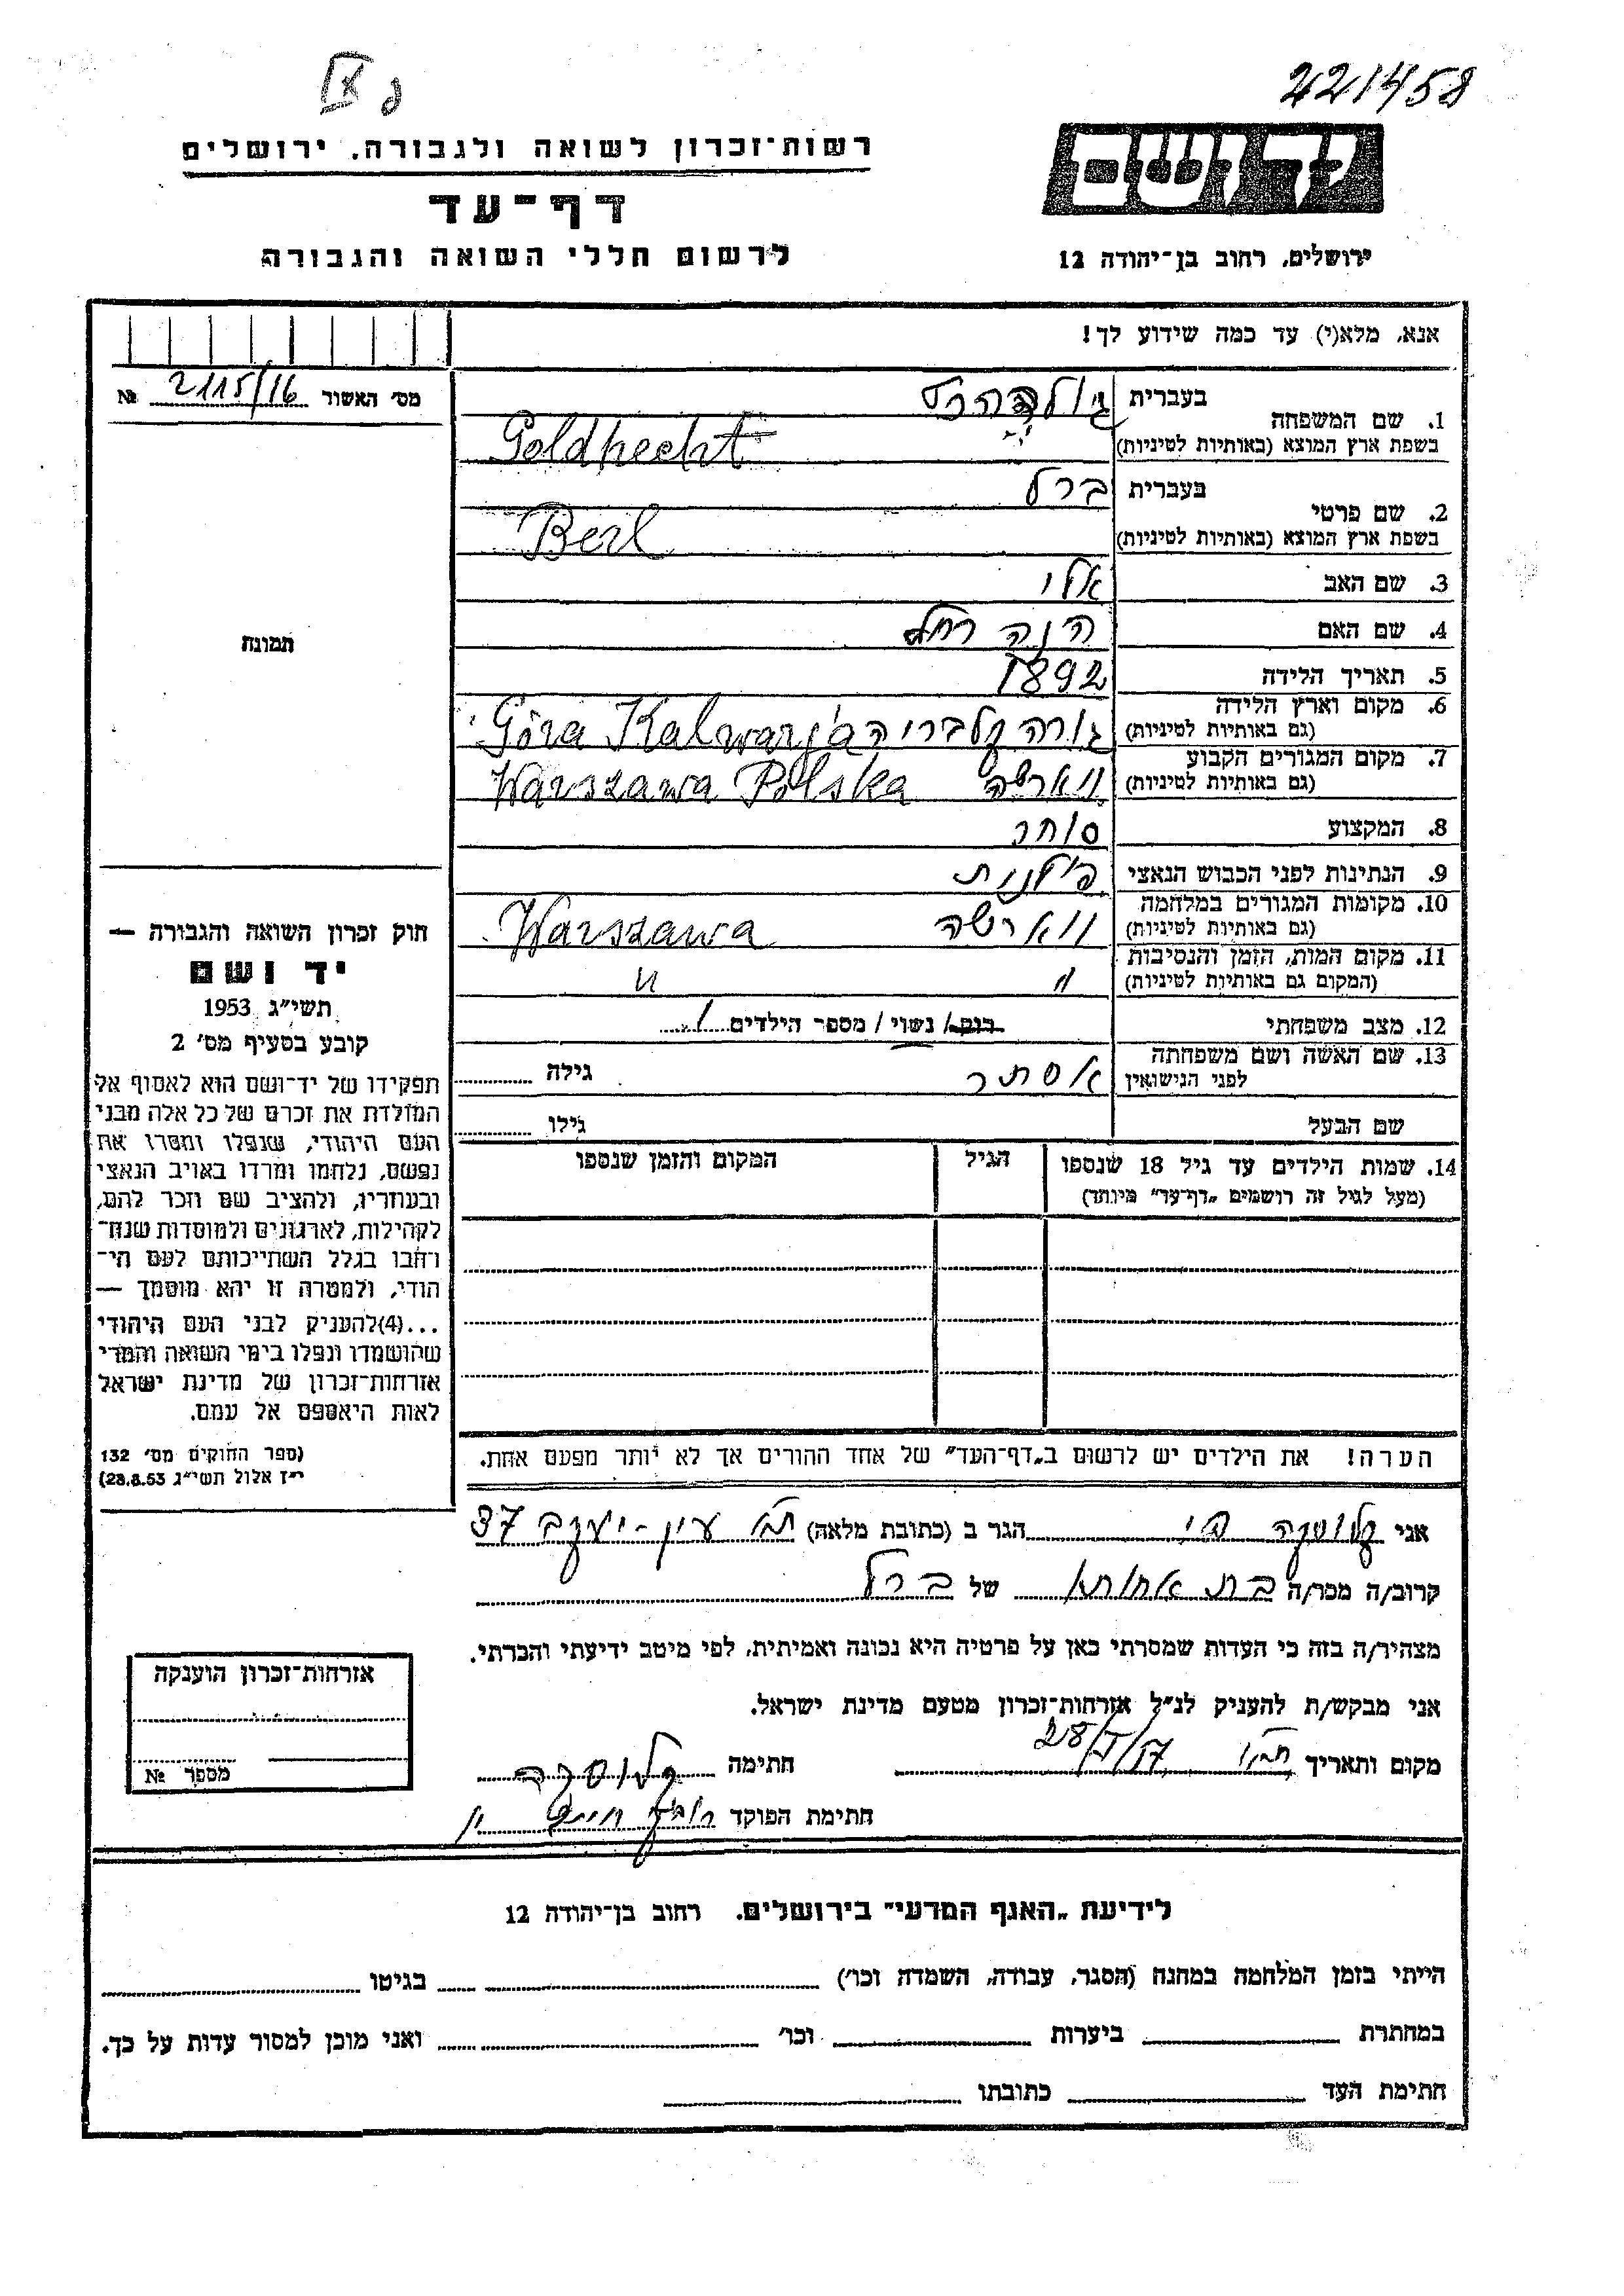 221458
רשות־זכרון לשואה ולגבורה, ירושלים
דף־עד
לרשום חללי השואה והגבורה
יד ושם
ירושלים, רחוב בן־יהודה 12
אנא, מלא(י) עד כמה שידוע לך!
מס' האשור 2115/16 №
תמונה
1. שם המשפחה
בעברית
בשפת ארץ המוצא (באותיות לטיניות) Goldhecht
2. שם פרטי
בעברית ברל
בשפת ארץ המוצא (באותיות לטיניות) Berl
3. שם האב אלי
4. שם האם חנה רחל
5. תאריך הלידה 1892
6. מקום וארץ הלידה
(גם באותיות לטיניות) גורה קלבריה Góra Kalwarja
7. מקום המגורים הקבוע
(גם באותיות לטיניות) ווארשה Warszawa Polska
8. המקצוע סוחר
9. הנתינות לפני הכבוש הנאצי פולנית
10. מקומות המגורים במלחמה
(גם באותיות לטיניות) ווארשה Warszawa
11. מקום המות, הזמן והנסיבות
(המקום גם באותיות לטיניות) " "
12. מצב משפחתי רווק / נשוי / מספר הילדים 1
13. שם האשה ושם משפחתה
לפני הנישואין אסתר גילה
שם הבעל גילו
14. שמות הילדים עד גיל 18 שנספו
(מעל לגיל זה רושמים „דף־עד" מיוחד)
הגיל
המקום והזמן שנספו
הערה! את הילדים יש לרשום ב„דף־העד" של אחד ההורים אך לא יותר מפעם אחת.
חוק זכרון השואה והגבורה —
יד ושם
תשי"ג 1953
קובע בסעיף מס' 2
תפקידו של יד־ושם הוא לאסוף אל
המולדת את זכרם של כל אלה מבני
העם היהודי, שנפלו ומסרו את
נפשם, נלחמו ומרדו באויב הנאצי
ובעוזריו, ולהציב שם וזכר להם,
לקהילות, לארגונים ולמוסדות שנח־
רבו בגלל השתייכותם לעם הי־
הודי, ולמטרה זו יהא מוסמך —
...(4)להעניק לבני העם היהודי
שהושמדו ונפלו בימי השואה והמרי
אזרחות־זכרון של מדינת ישראל
לאות היאספם אל עמם.
(ספר החוקים מס' 132
י"ז אלול תשי"ג 28.8.53)
אני הגר ב (כתובת מלאה) ת"א עין-יעקב 37
קרוב/ה מכר/ה בת אחותו של ברל
מצהיר/ה בזה כי העדות שמסרתי כאן על פרטיה היא נכונה ואמיתית, לפי מיטב ידיעתי והכרתי.
אני מבקש/ת להעניק לנ"ל אזרחות־זכרון מטעם מדינת ישראל.
מקום ותאריך ת"א חתימה
חתימת הפוקד
אזרחות־זכרון הוענקה
מספר №
לידיעת „האגף המדעי" בירושלים. רחוב בן־יהודה 12
הייתי בזמן המלחמה במחנה (הסגר, עבודה, השמדה וכו') בגיטו
במחתרת ביערות וכו' ואני מוכן למסור עדות על כך.
חתימת העד כתובתו